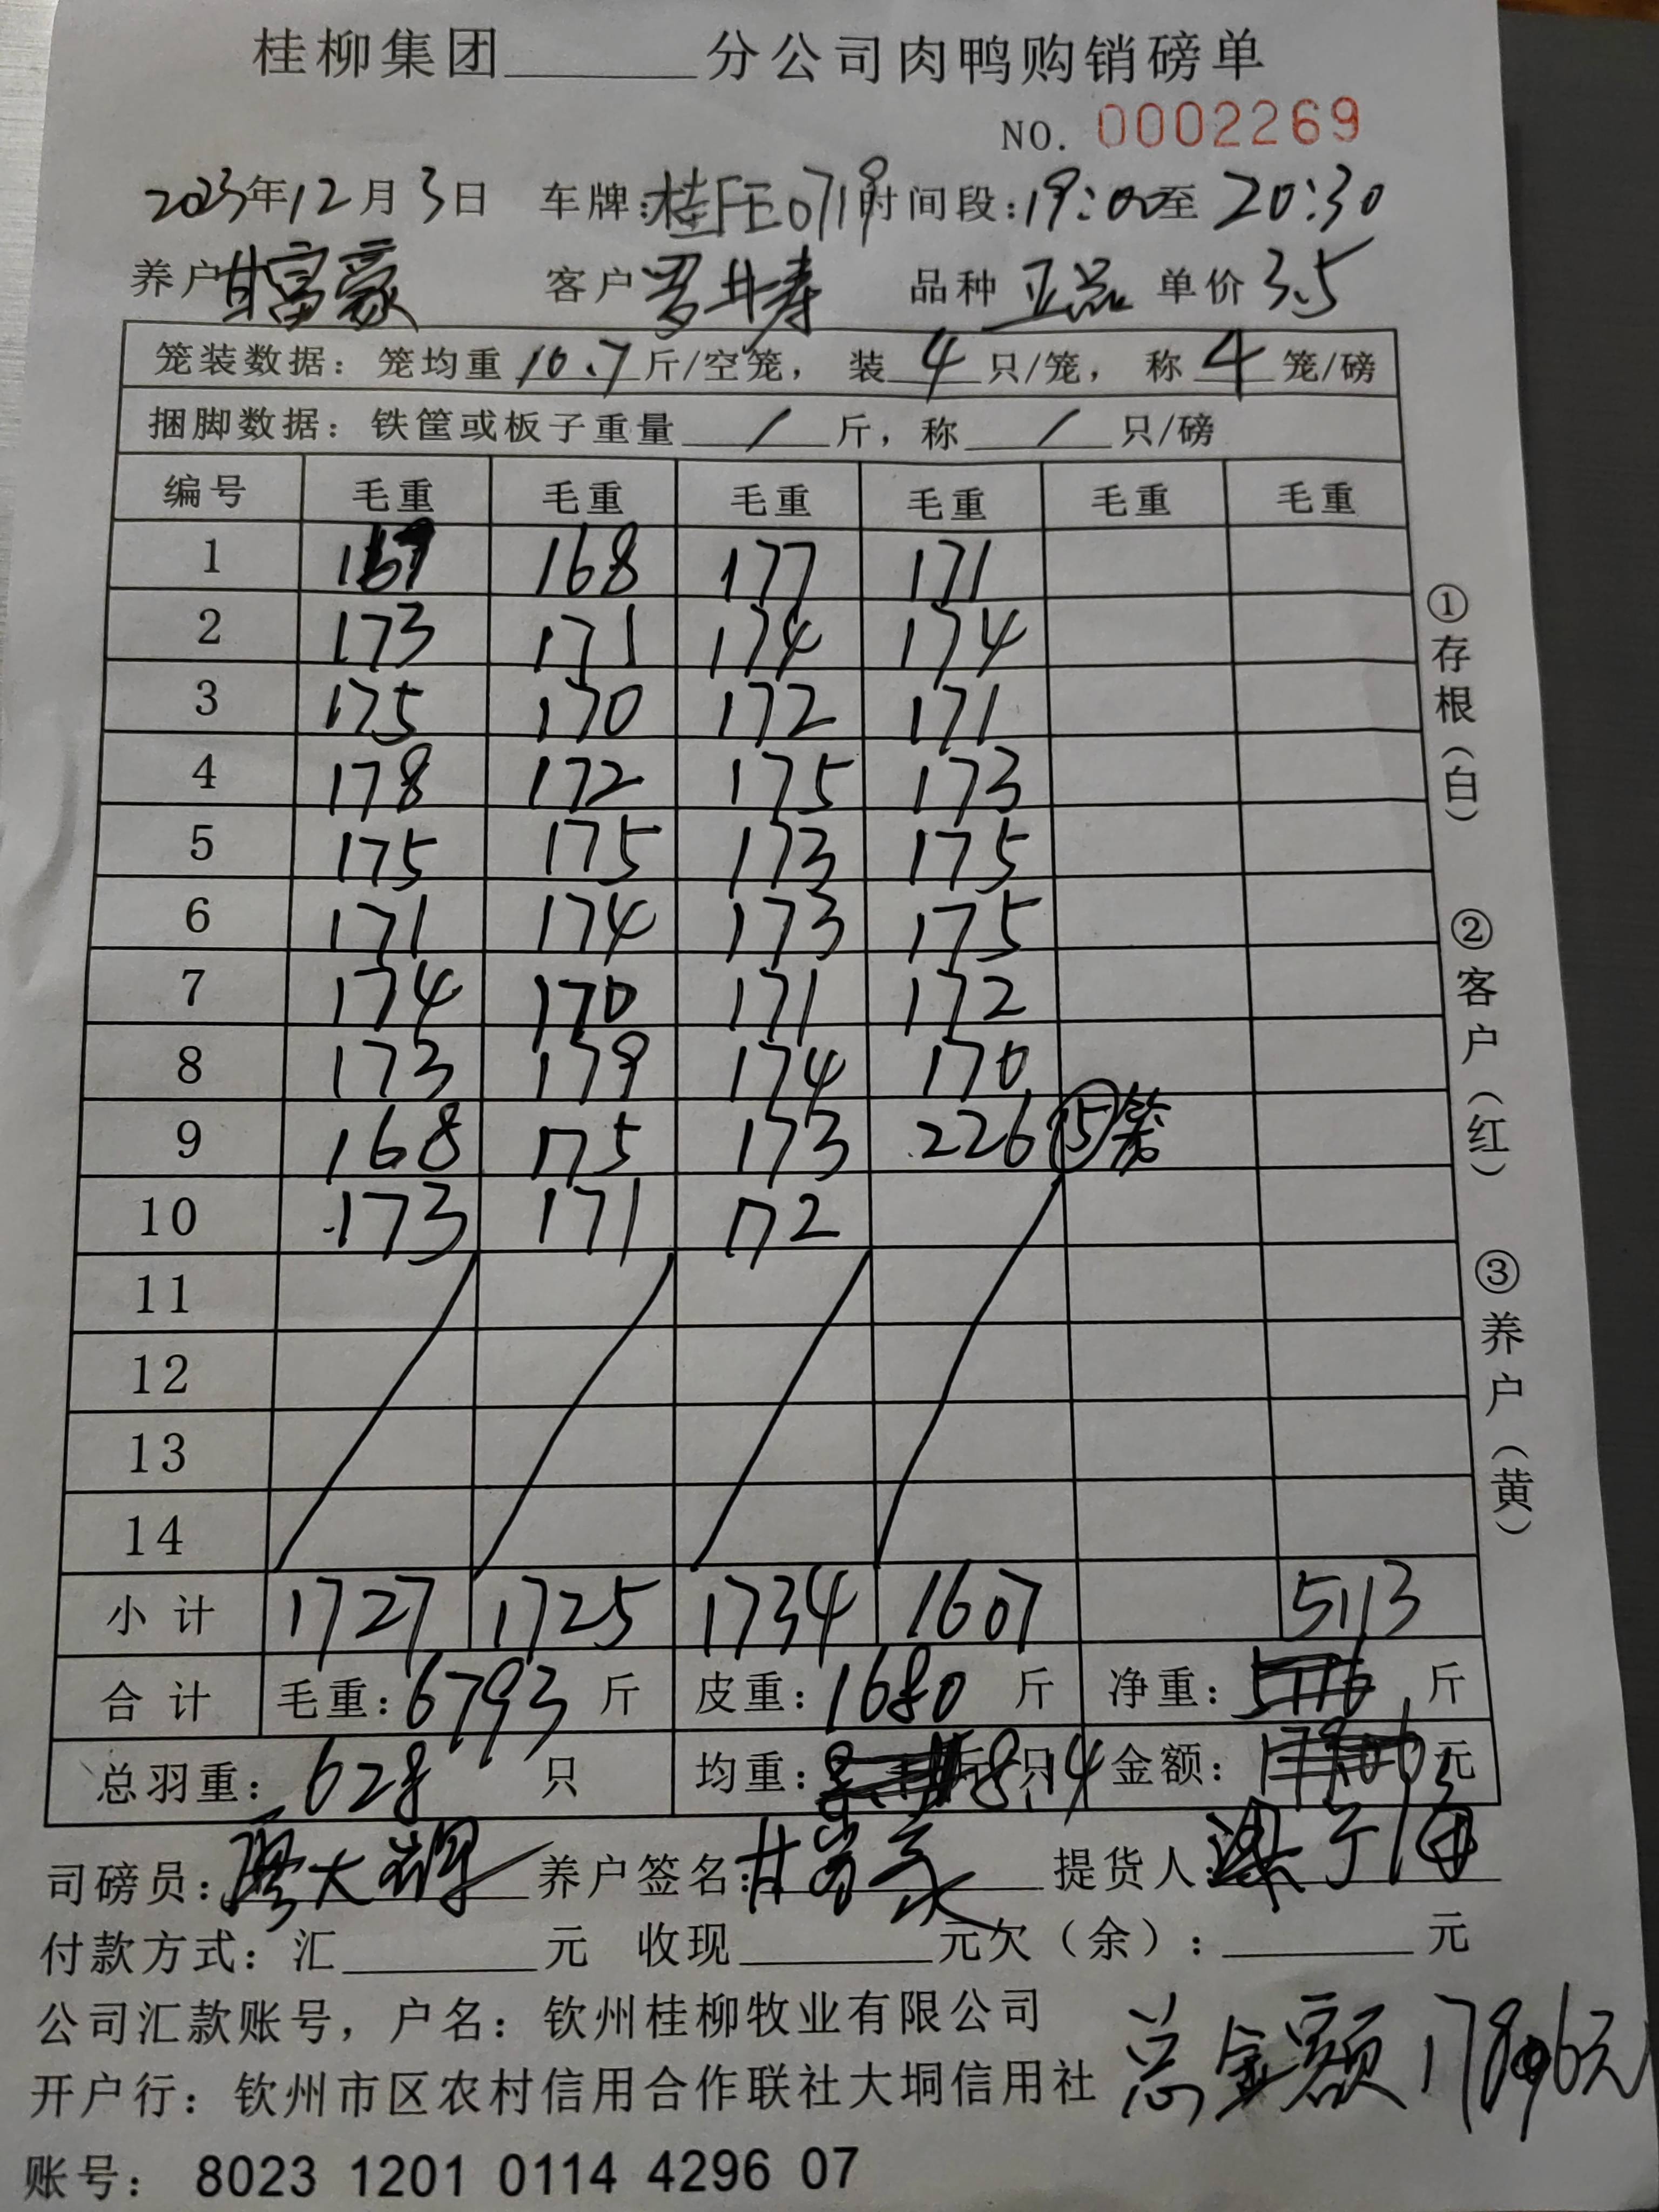 桂柳集团______分公司肉鸭购销磅单
NO. 0002269
2023年12月3日 车牌:桂FE0719 时间段:19:00至20:30
养户甘富豪 客户罗廾寿 品种 正品 单价3.5
笼装数据：笼均重10.7斤/空笼， 装4只/笼， 称4笼/磅
捆脚数据：铁筐或板子重量/斤，称/只/磅
编号 毛重 毛重 毛重 毛重 毛重 毛重
1 167 168 177 171
2 173 171 174 174
3 175 170 172 171
4 178 172 175 173
5 175 175 173 175
6 171 174 173 175
7 174 170 171 172
8 173 179 174 170
9 168 175 173 226 ⑮笼
10 173 171 172
11
12
13
14
小计 1727 1725 1734 1607 5113
合计 毛重:6793斤 皮重:1680斤 净重:斤
总羽重:628只 均重:8.14 只 金额:元
司磅员:廖大 养户签名:甘富豪 提货人:
付款方式：汇______元 收现______元欠（余）：______元
公司汇款账号，户名：钦州桂柳牧业有限公司
开户行：钦州市区农村信用合作联社大垌信用社
总金额17896元
账号： 8023 1201 0114 4296 07
①存根（白）
②客户（红）
③养户（黄）